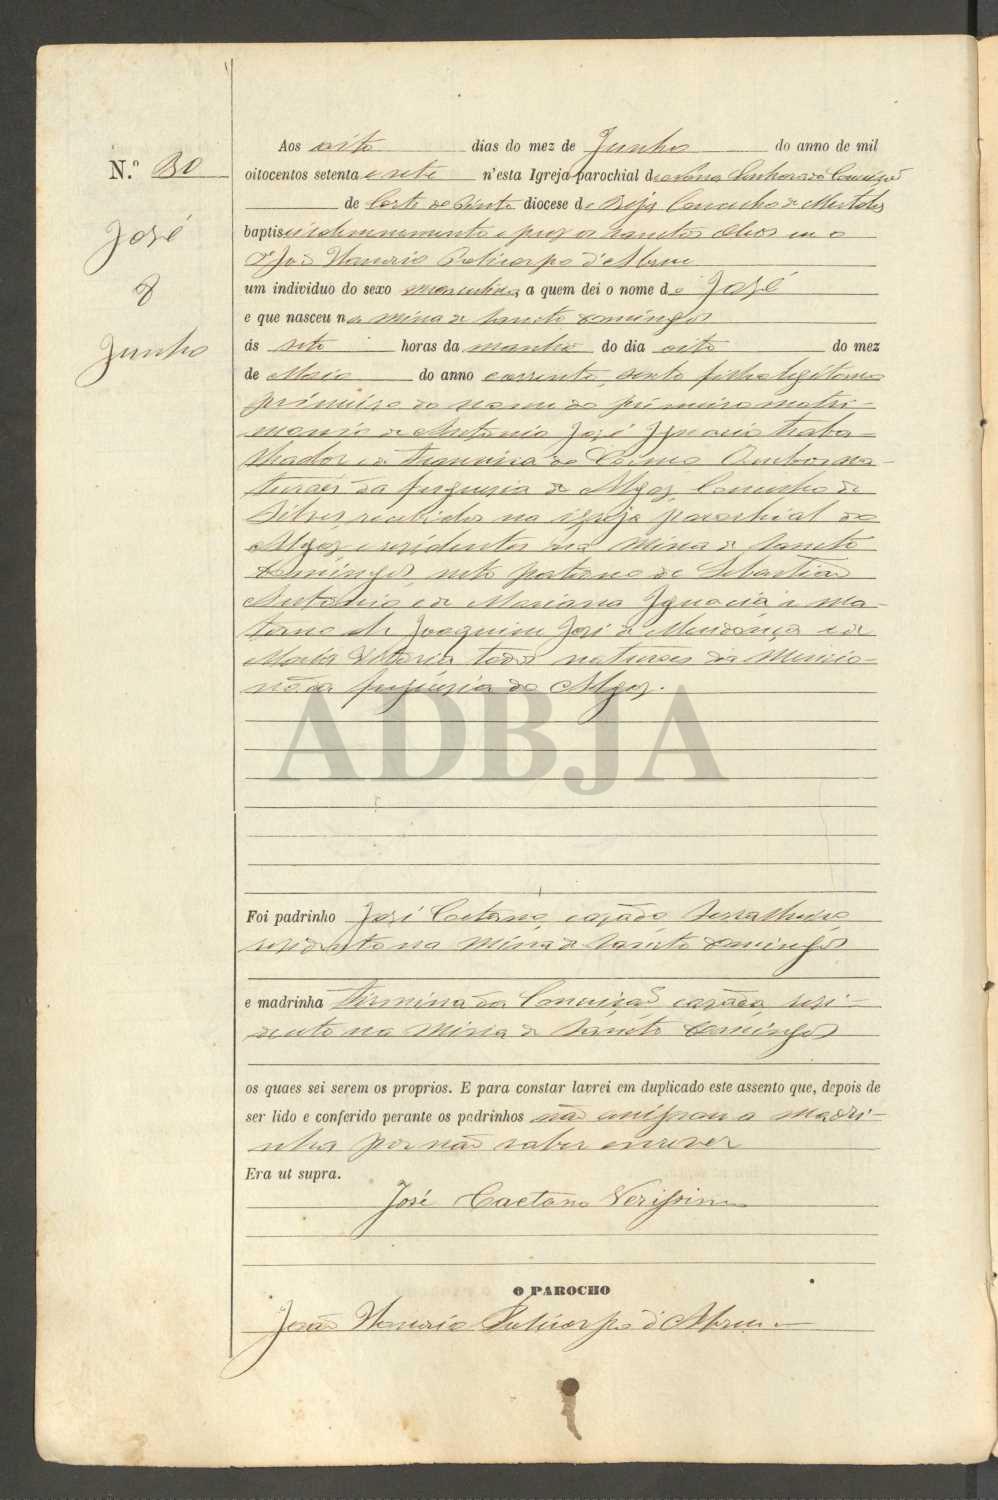 N.º 30
José
8
Junho
Aos oito dias do mez de Junho do anno de mil
oitocentos setenta e sete n'esta Igreja parochial de nossa Senhora da Conceição
de Corte do Pinto diocese de Beja Concelho de Mertola
baptisei solemnemente e puz os sanctos oleos eu o
Pe João Honorio Policarpo d'Abreu
um individuo do sexo masculino a quem dei o nome de José
e que nasceu na mina de Sancto Domingos
ás sete horas da manhã do dia oito do mez
de Maio do anno corrente, sexto filho legitimo
primeiro do nome do primeiro matri-
monio de Antonio José Ignacio traba-
lhador e de Francisca do Carmo Ambos na-
turaes da freguesia de Algoz, Concelho de
Silves, recebidos na igreja parochial do
Algoz e residentes na mina de Sancto
Domingos, neto paterno de Sebastião
Antonio e de Marianna Ignacia e ma-
terno de Joaquim José de Mendonça e de
Maria Victoria todos naturaes da mencio-
nada freguesia do Algoz.
ADBJA
Foi padrinho José Caetano, casado, serralheiro
residente na mina de Sancto Domingos
e madrinha Herminia da Conceição casada, resi-
dente na mina de Sancto Domingos
os quaes sei serem os proprios. E para constar lavrei em duplicado este assento que, depois de
ser lido e conferido perante os padrinhos não assignou a madri-
nha por não saber escrever
Era ut supra.
José Caetano Verissimo
O PAROCHO
João Honorio Policarpo d'Abreu